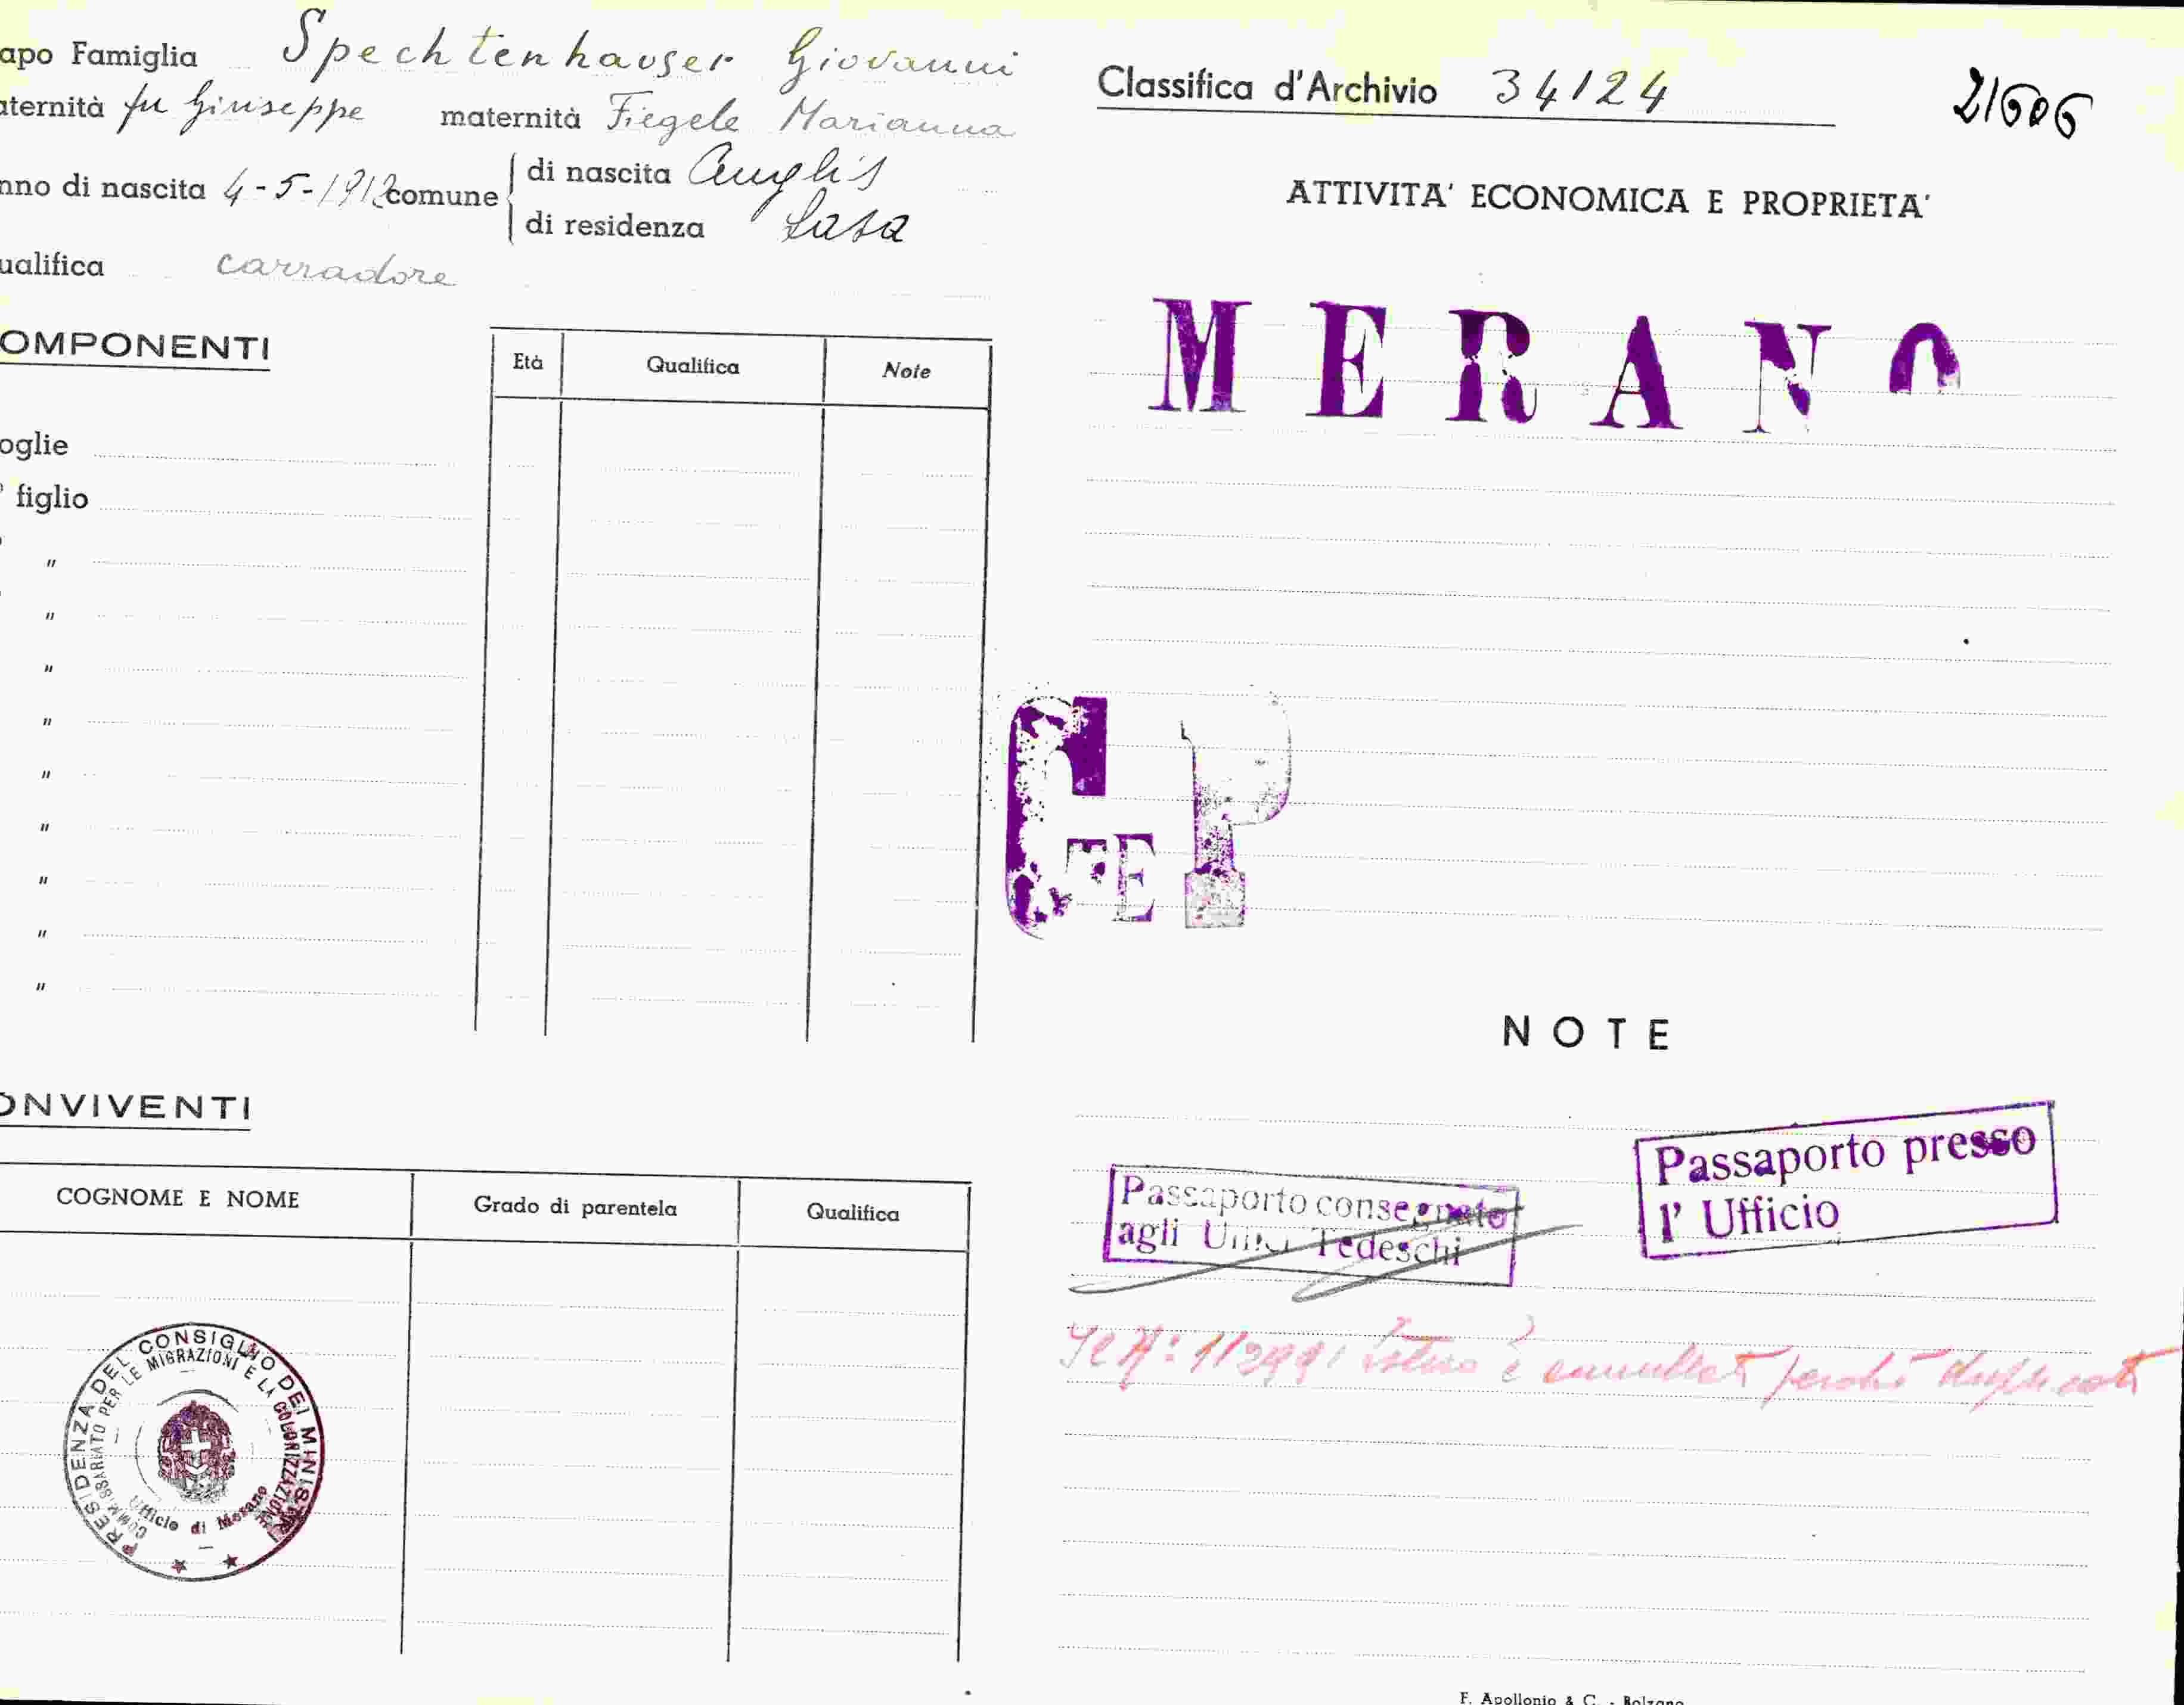 apo Famiglia Spechtenhauser Giovanni
aternità fu Giuseppe maternità Fiegele Marianna
nno di nascita 4-5-1912 comune di nascita
di residenza Lasa
ualifica carradore
OMPONENTI
Età Qualifica Note
oglie
° figlio
"
"
"
"
"
"
"
"
"
ONVIVENTI
COGNOME E NOME Grado di parentela Qualifica
PRESIDENZA DEL CONSIGLIO DEI MINISTRI
COMMISSARIATO PER LE MIGRAZIONI E LA COLONIZZAZIONE
Ufficio di Merano
Classifica d'Archivio 34124
21606
ATTIVITA' ECONOMICA E PROPRIETA'
MERANO
C E P
NOTE
Passaporto consegnato
agli Uffici Tedeschi
Passaporto presso
l' Ufficio
è perché
F. Apollonio & C. - Bolzano